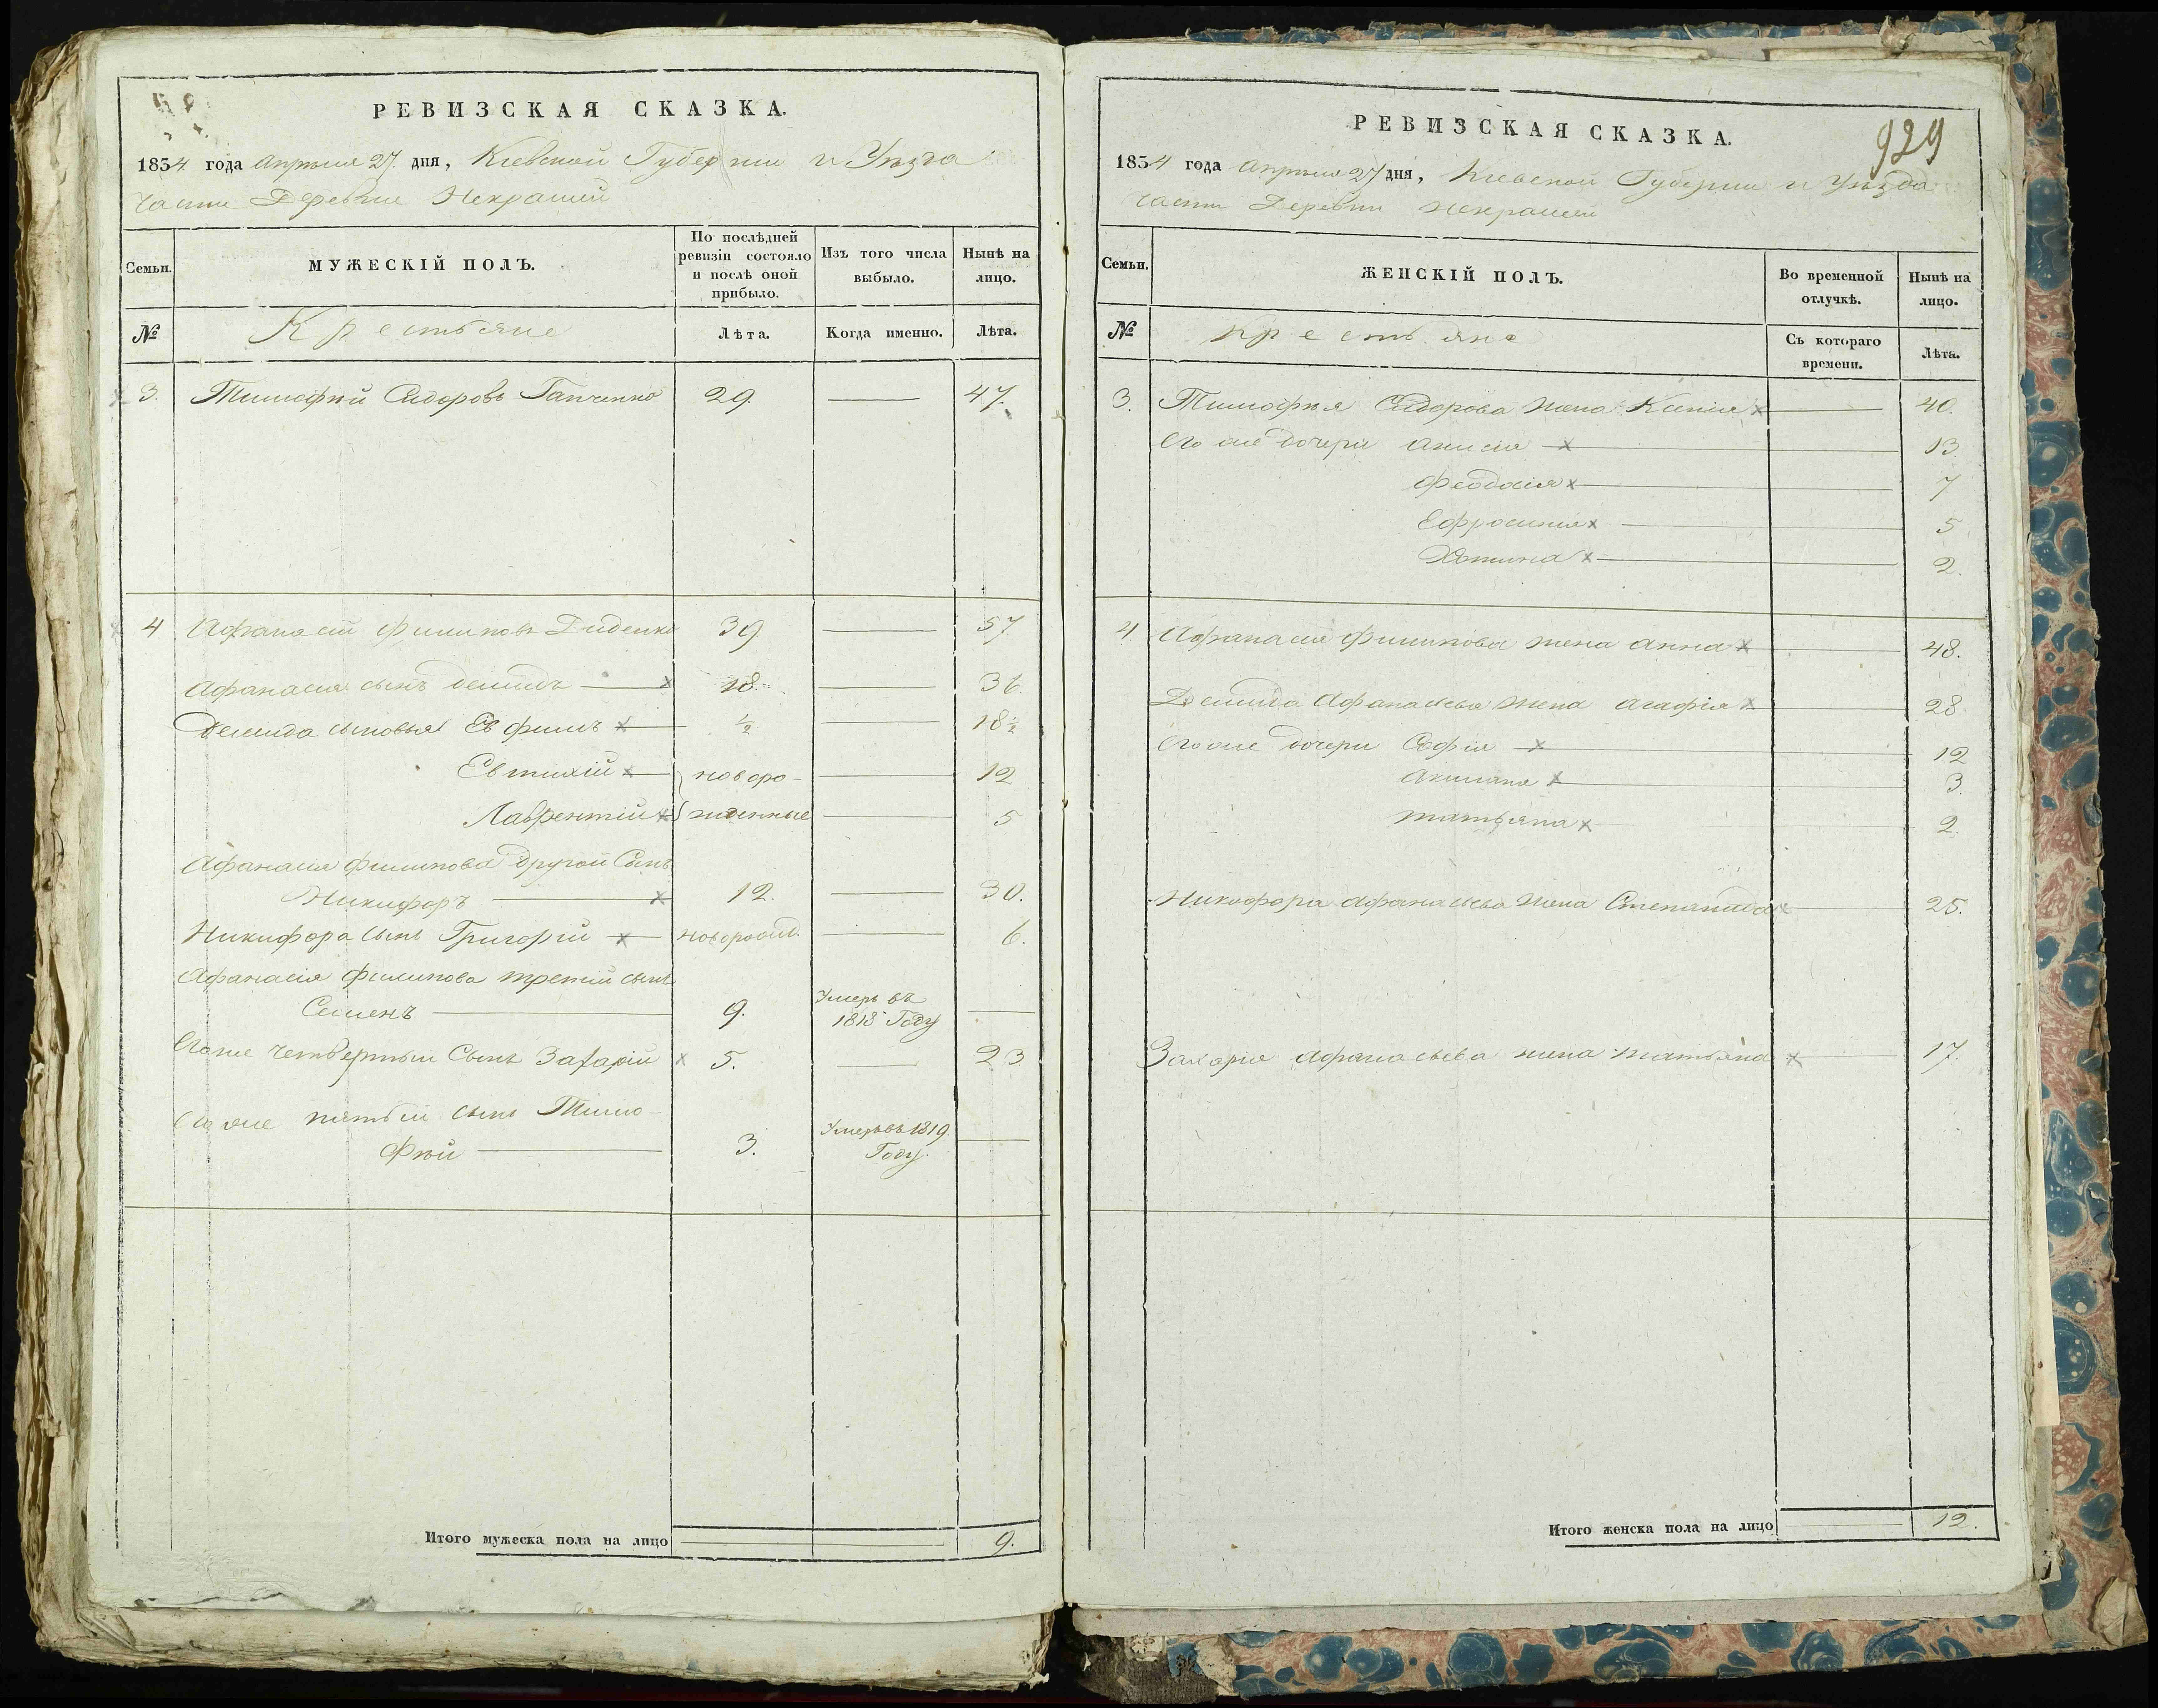 РЕВИЗСКАЯ СКАЗКА.
1834 года Апрѣля 27. дня, Кіевской Губерніи и Уѣзда
части Деревни Некрашей
Семьи.
МУЖЕСКІЙ ПОЛЪ.
По послѣдней ревизіи состояло и послѣ оной прибыло.
Изъ того числа выбыло.
Нынѣ на лицо.
№
Крестьяне
Лѣта.
Когда именно.
Лѣта.
3. Тимофѣй Сидоровъ Ганченко 29. 47.
4 Афанасій Филиповъ Диденко 39 57
Афанасія сынъ Демидъ 18. 36.
Демида сыновья Евфимъ ½ 18½
Евтихій новоро- 12
Лаврентій жденные 5
Афанасія Филипова другой Сынъ
Никифоръ 12. 30.
Никифора сынъ Григорій новорожд. 6.
Афанасія Филипова третій сынъ
Семенъ 9. Умеръ въ 1818 Году
Егоже четвертый Сынъ Захарій 5. 23
Егоже пятый сынъ Тимо-
фѣй 3. Умеръ въ 1819 Году.
Итого мужеска пола на лицо 9.
929
РЕВИЗСКАЯ СКАЗКА.
1834 года Апрѣля 27 дня, Кіевской Губерніи и Уѣзда
части Деревни Некрашей
Семьи.
ЖЕНСКІЙ ПОЛЪ.
Во временной отлучкѣ.
Нынѣ на лицо.
№
Крестьяне
Съ котораго времени.
Лѣта.
3. Тимофѣя Сидорова жена Ксенія 40.
Его же дочери Анисія 13
Феодосія 7
Ефросинія 5
2.
4 Афанасія Филипова жена Анна 48.
Демида Афанасьева жена Агафія 28
Егоже дочери Софія 12
Акилина 3.
Татьяна 2.
Никифора Афанасьева жена Степанида 25.
Захарія Афанасьева жена Татьяна 17.
Итого женска пола на лицо 12.